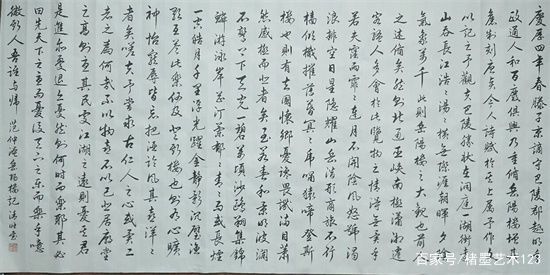 慶歷四年春滕子京謫守巴陵郡越明年
政通人和百廢俱興乃重修岳陽樓增其
舊制刻唐賢今人詩賦於其上屬予作文
以記之予觀夫巴陵勝狀在洞庭一湖銜遠
山吞長江浩浩湯湯橫無際涯朝暉夕陰
氣象萬千此則岳陽樓之大觀也前人
之述備矣然則北通巫峽南極瀟湘遷
客騷人多會於此覽物之情得無異乎
若夫霪雨霏霏連月不開陰風怒號濁
浪排空日星隱耀山岳潛形商旅不行
檣傾楫摧薄暮冥冥虎嘯猿啼登斯
樓也則有去國懷鄉憂讒畏譏滿目蕭
然感極而悲者矣至若春和景明波瀾
不驚上下天光一碧萬頃沙鷗翔集錦
鱗游泳岸芷汀蘭郁郁青青而或長煙
一空皓月千里浮光躍金靜影沉璧漁
歌互答此樂何極登斯樓也則有心曠
神怡寵辱皆忘把酒臨風其喜洋洋
者矣嗟夫予嘗求古仁人之心或異二
者之為何哉不以物喜不以己悲居廟堂
之高則憂其民處江湖之遠則憂其君
是進亦憂退亦憂然則何時而樂耶其必
曰先天下之憂而憂後天下之樂而樂乎噫
微斯人吾誰與歸 范仲淹岳陽樓記
百家号/楮墨艺术123